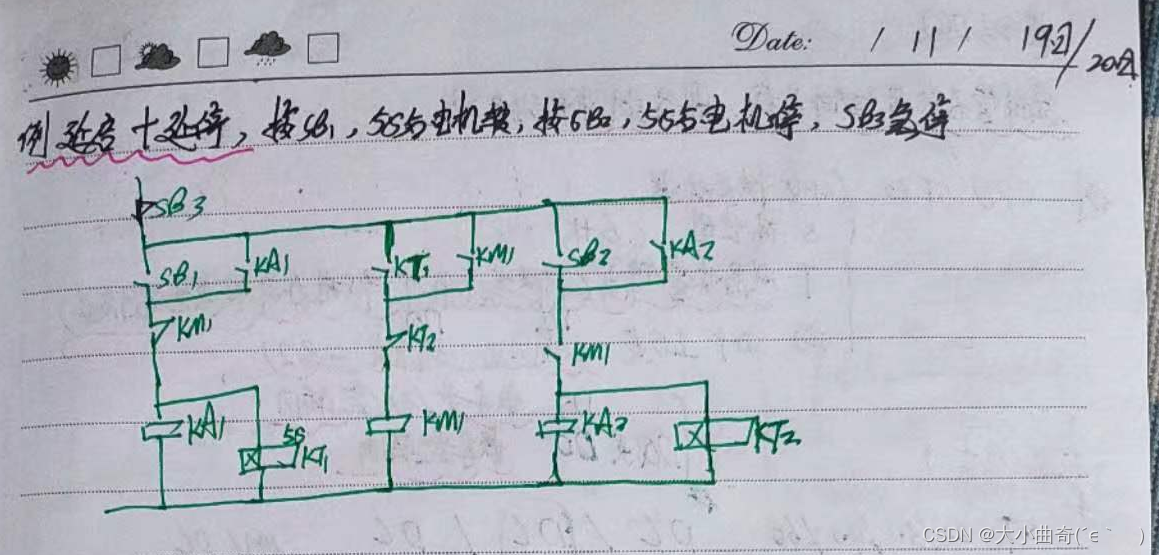 Date: / 11 / 19日/20日
例 延启+延停，按SB1，5S后电机转，按SB2，5S后电机停，SB3急停
SB3
SB1 KA1 KT1 KM1 SB2 KA2
KM1 KT2 KM1
KA1 5S KT1 KM1 KA2 KT2
CSDN @大小曲奇(´ε｀ )